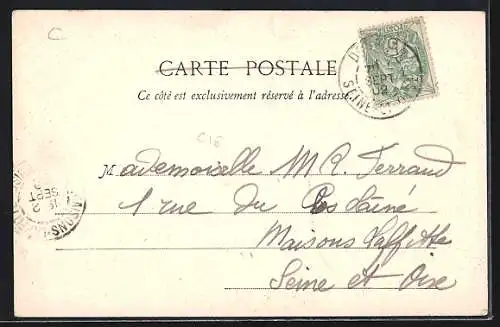 C
CARTE POSTALE
Ce côté est exclusivement réservé à l'adresse
SEPT
02
SEINE
C18
Mademoiselle M R. Ferrand
1 rue du
Maisons Laffitte
Seine et Oise
MAISONS
SEPT